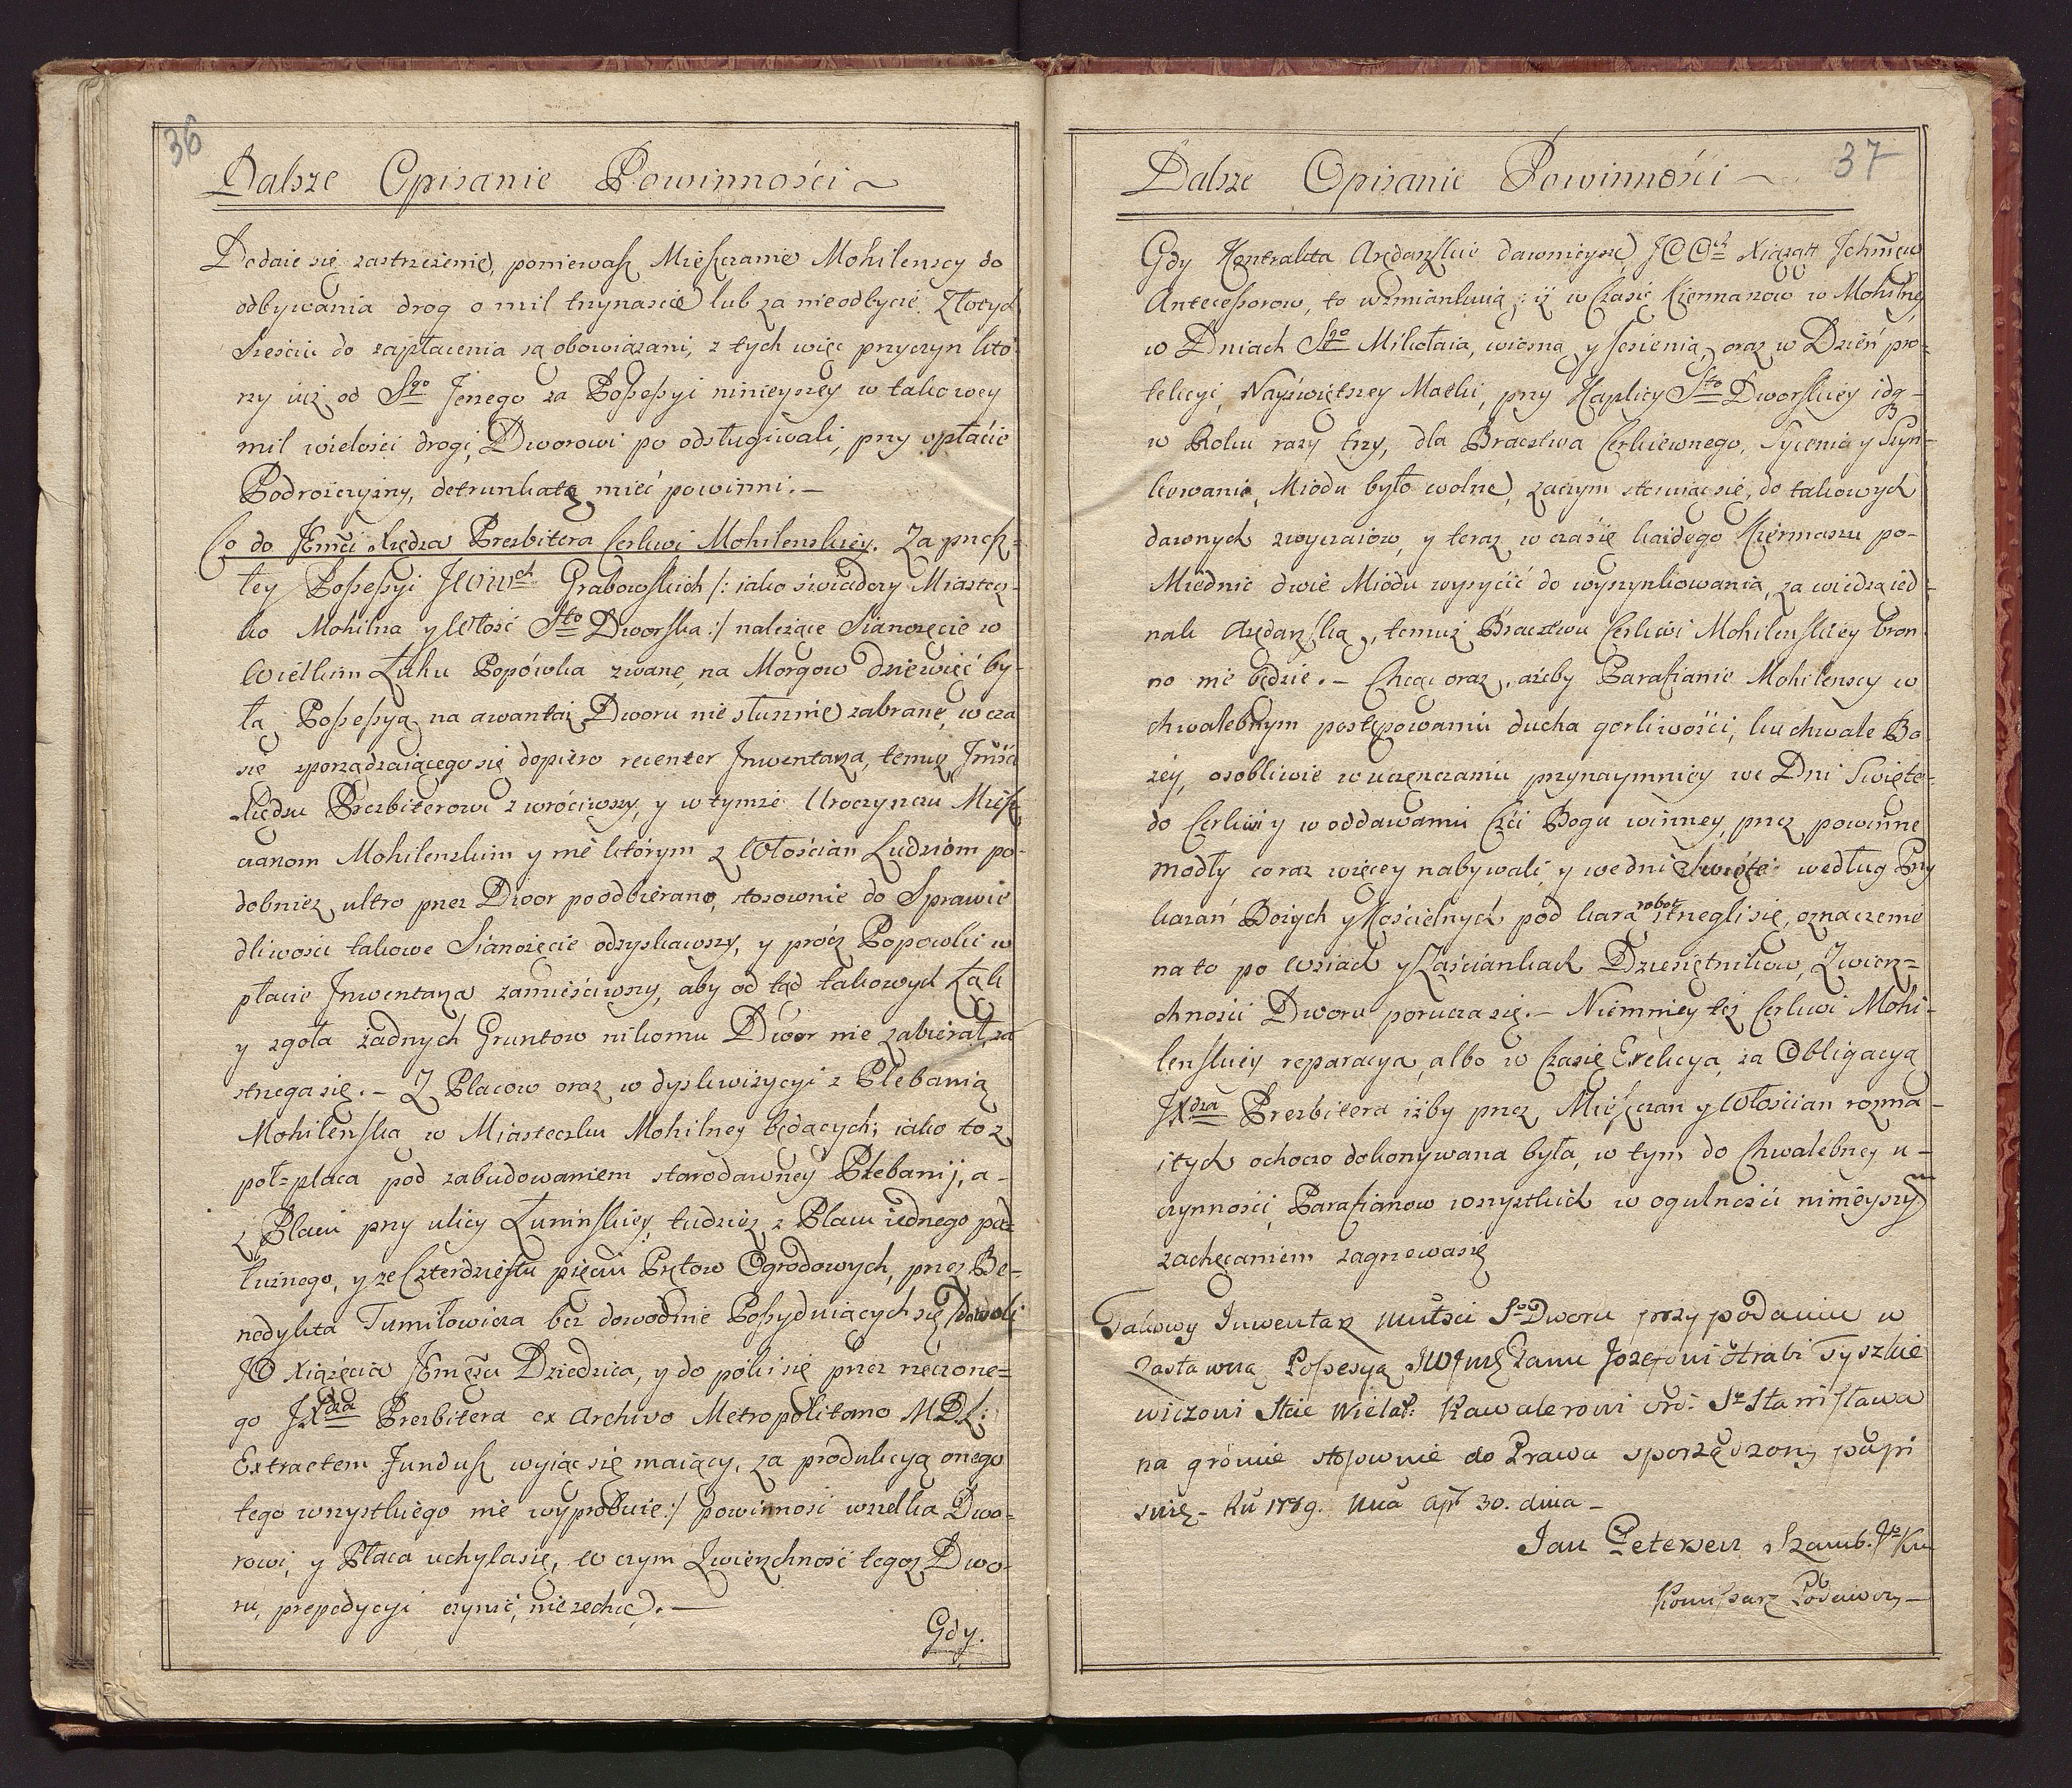 36
Dalsze Opisanie Powinności
Dodaie się zastrzeżenie, poniewaß Mießczanie Mohilenscy do
odbywania drog o mil trzynascie lub za nieodbycie Złotych
Sześciu do zapłacenia są obowiązani, z tych więc przyczyn któ
rzy iuż od Sgo Jerzego za Poßeßyi ninieyszey w takowey
mil wielosci drogi, Dworowi po odsługiwali, przy opłacie
Podrożczyzny, detrunkatę mieć powinni.—
Co do JEmći Xiędza Prezbitera Cerkwi Mohilenskiey. Za przeß-
łey Poßeßyi JWWch Grabowskich /: iako świadczy Miastecz-
ko Mohilna y Włość Sto Dworska :/ należące Sianożęcie w
Wielkim Łuhu Popówka zwane, na Morgow dziewięć by-
łą Poßeßyą na awantaż Dworu nie słusznie zabrane, w cza
się zporządzaiącego się dopiero recenter Jnwentarza, temuż Jmści
Xiędzu Prezbiterowi zwróciwszy, y w tymże Uroczyszczu Mieß
czanom Mohilenskim y nie którym z Włościan Ludziom po-
dobnież ultro przez Dwor poodbierane, stosownie do Sprawie
dliwości takowe Sianożęcie odzyskawszy, y prócz Popowki w
płacie Jnwentarza zamieściwszy, aby od tąd takowych Łąk
y zgoła żadnych Gruntow nikomu Dwor nie zabierał, za
strzega się.— Z Placow oraz w dyskwizycyi z Plebanią
Mohilenską w Miasteczku Mohilney będących; iako to z
poł-placa pod zabudowaniem starodawney Plebanij, a-
z Placu przy ulicy Łuninskiey, tudzież z Placu iednego pod-
łużnego, y ze Czterdziestu pięciu Prętow Ogrodowych, przez Be-
nedykta Tumiłowicza bez dowodnie Poßyduiących się /dowoli
JO Xiążęcia JEmści Dziedzica, y do póki się przez rzeczone-
go JXdza Prezbitera ex Archivo Metropolitano MDL:
Extractem Funduß wyiąc się maiący, za produkcyą onego
tego wszystkiego nie wyprobuie :/ powinność wszelka Dwo-
rowi, y Płaca uchyla się, w czym Zwierzchność tegoż Dwo-
ru, prepedycyi czynić, nie zechce.—
Gdy.
37
Dalsze Opisanie Powinności
Gdy Kontrakta Arędarskie dawnieysze, JOOch Xiążąt Jchmćiow
Antecessorow, to wzmiankuią; iż w Czasie Kiermaszow w Mohilney
w Dniach Sgo Mikołaia, wiosną y Jesienią, oraz w Dzień pro-
tekcyi, Nayświętszey Matki, przy Kaplicy Sto Dworskiey idq-
w Roku razy trzy, dla Bractwa Cerkiewnego, Sycenia y Szyn-
kowania Miodu było wolne, zaczym stosuiąc się, do takowych
dawnych zwyczaiow, y teraz w czasie każdego Kiermaszu po-
Miednic dwie Miodu wysycić do wyszynkowania, za wiedzą ied-
nak Arędarską, temuż Bractwu Cerkwi Mohilenskiey bron
no nie będzie.— Chcąc oraz, ażeby Parafianie Mohilenscy w
chwalebnym postępowaniu ducha gorliwości, ku chwale Bo
żey, osobliwie w uczęszczaniu przynaymniey we Dni Święte-
do Cerkwi y w oddawaniu Czci Bogu winney, przez powinne
modły coraz więcey nabywali, y we dni Święte według Przy
kazań Bożych y Kościelnych pod karą robot strzegli się, oznaczenie
na to po Wsiach y Zaściankach Dziesiętnikow, Zwierz-
chności Dworu porucza się.— Niemniey też Cerkwi Mohi-
lenskiey reparacya, albo w Czasie Erekcya, za Obligacyą
JXdza Prezbitera iżby przez Mießczan y Włościan rozma
itych ochoczo dokonywana była, w tym do Chwalebney u-
czynności, Parafianow wszystkich w ogulności ninieyszym
zachęcaniem zagrzewa się
Takowy Inwentarz Mułsci Sto Dworu przy podaniu w
Zastawną Possesyą JWJmę Panu Jozefowi Hrabi Tyszkie
wiczowi Kawalerowi Ord: So Stanisława
na gróncie stosownie do Prawa sporządzony podpi
suię.— Ru 1789. Mca Apr 30. dnia —
Jan Petersen Szamb. J. K.
Komissarz Podawczy —